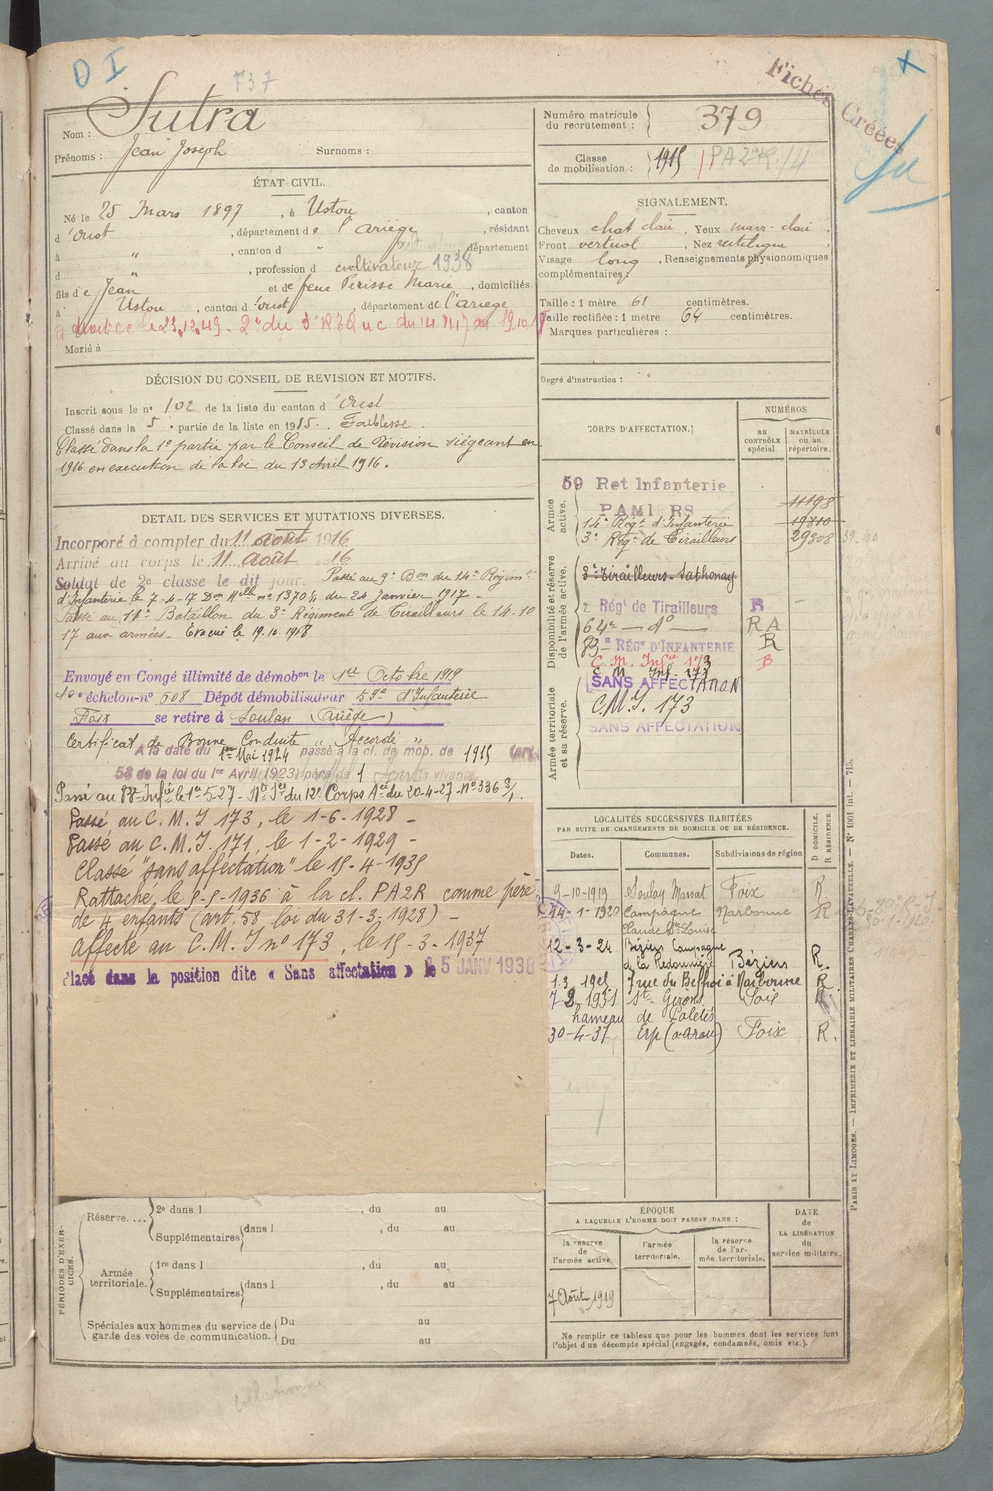 D I
737
Fichés Créées
Nom : Sutra
Prénoms : Jean Joseph Surnoms :
Numéro matricule du recrutement : 379
Classe de mobilisation : 1915 PA2R/4
ÉTAT CIVIL.
Né le 25 Mars 1897, à Ustou, canton
d'Oust, département de l'Ariège, résidant
à " , canton d " , département
d " , profession d cultivateur 1938
fils de Jean et de feue Périsse Marie, domiciliés
à Ustou, canton d'Oust, département de l'Ariège
Marié à
SIGNALEMENT.
Cheveux chat clair, Yeux marr. clair.
Front vertical, Nez rectiligne
Visage long, Renseignements physionomiques
complémentaires :
Taille : 1 mètre 61 centimètres.
Taille rectifiée : 1 mètre 64 centimètres.
Marques particulières :
Degré d'instruction :
DÉCISION DU CONSEIL DE REVISION ET MOTIFS.
Inscrit sous le n° 102 de la liste du canton d'Oust
Classé dans la 5e partie de la liste en 1915. Faiblesse.
Classé dans la 1e partie par le Conseil de Révision siégeant en
1916 en execution de la loi du 13 Avril 1916.
DETAIL DES SERVICES ET MUTATIONS DIVERSES.
Incorporé à compter du 11 août 1916
Arrivé au corps le 11 août 16
Soldat de 2e classe le dit jour. Passé au 9e Bon du 14e Régimt
d'Infanterie le 7-4-17 Don Mlle n° 1370 4/1 du 24 janvier 1917 -
Passé au 11e Bataillon du 3e Régiment de Tirailleurs le 14-10
17 aux armées. Evacué le 19.10.1918
Envoyé en Congé illimité de démobon le 1er Octobre 1919
10e échelon-n° 608 Dépôt démobilisateur 59e d'Infanterie
Foix se retire à Soulan (Ariège)
Certificat de Bonne Conduite " Accordé "
A la date du 1er Mai 1924 passé à la cl. de mob. de 1915
58 de la loi du 1er Avril 1923) père de 1 enfant vivant
Passé au 83e Infie le 1er-5-27 -
Passé au C. M. I 173, le 1-6-1928 -
Passé au C. M. I 171, le 1-2-1929 -
Classé "sans affectation" le 15-4-1935
Rattaché, le 8-5-1936 à la cl. PA2R comme père
de 4 enfants (art. 58 loi du 31-3-1928) -
Affecté au C. M. I n° 173, le 15-3-1937
Placé dans la position dite « Sans affectation » le 15 JANV 1938
CORPS D'AFFECTATION.
NUMÉROS
AU CONTRÔLE spécial.
MATRICULE ou au répertoire.
Armée active.
59 Ret Infanterie
PAMIERS 11198
14e Régt d'Infanterie 19810
3e Régt de Tirailleurs 29308
Disponibilité et réserve de l'armée active.
3e Tirailleurs Sathonay
2 Régt de Tirailleurs R
64e — do — RA
83e RÉGt D'INFANTERIE R
C. M. Infie 173 B
C. M. Inf. 173
Armée territoriale et sa réserve.
SANS AFFECTATION
C.M.I. 173
SANS AFFECTATION
LOCALITÉS SUCCESSIVES HABITÉES
PAR SUITE DE CHANGEMENTS DE DOMICILE OU DE RÉSIDENCE.
Dates. Communes. Subdivisions de région
D DOMICILE. R RÉSIDENCE.
9-10-1919 Soulan Massat Foix R
14-1-1920 Campagne Narbonne R
12-3-24 Béziers Campagne de la Redonnière Béziers R.
1.3.1925 7 rue du Beffroi à Narbonne R
7 2-1931 St-Girons Foix R.
hameau de Paletès
30-4-37 Erp (varau) Foix R.
PÉRIODES D'EXERCICES.
Réserve.... 2e dans l , du au
Supplémentaires dans l , du au
Armée territoriale. 1re dans l , du au
Supplémentaires dans l , du au
Spéciales aux hommes du service de garde des voies de communication. Du au
Du au
ÉPOQUE
A LAQUELLE L'HOMME DOIT PASSER DANS :
la réserve de l'armée active.
l'armée territoriale.
la réserve de l'armée territoriale.
DATE de LA LIBÉRATION du service militaire.
7 Août 1919
Ne remplir ce tableau que pour les hommes dont les services font
l'objet d'un décompte spécial (engagés, condamnés, omis etc.).
PARIS ET LIMOGES. — IMPRIMERIE ET LIBRAIRIE MILITAIRES CHARLES-LAVAUZELLE. —